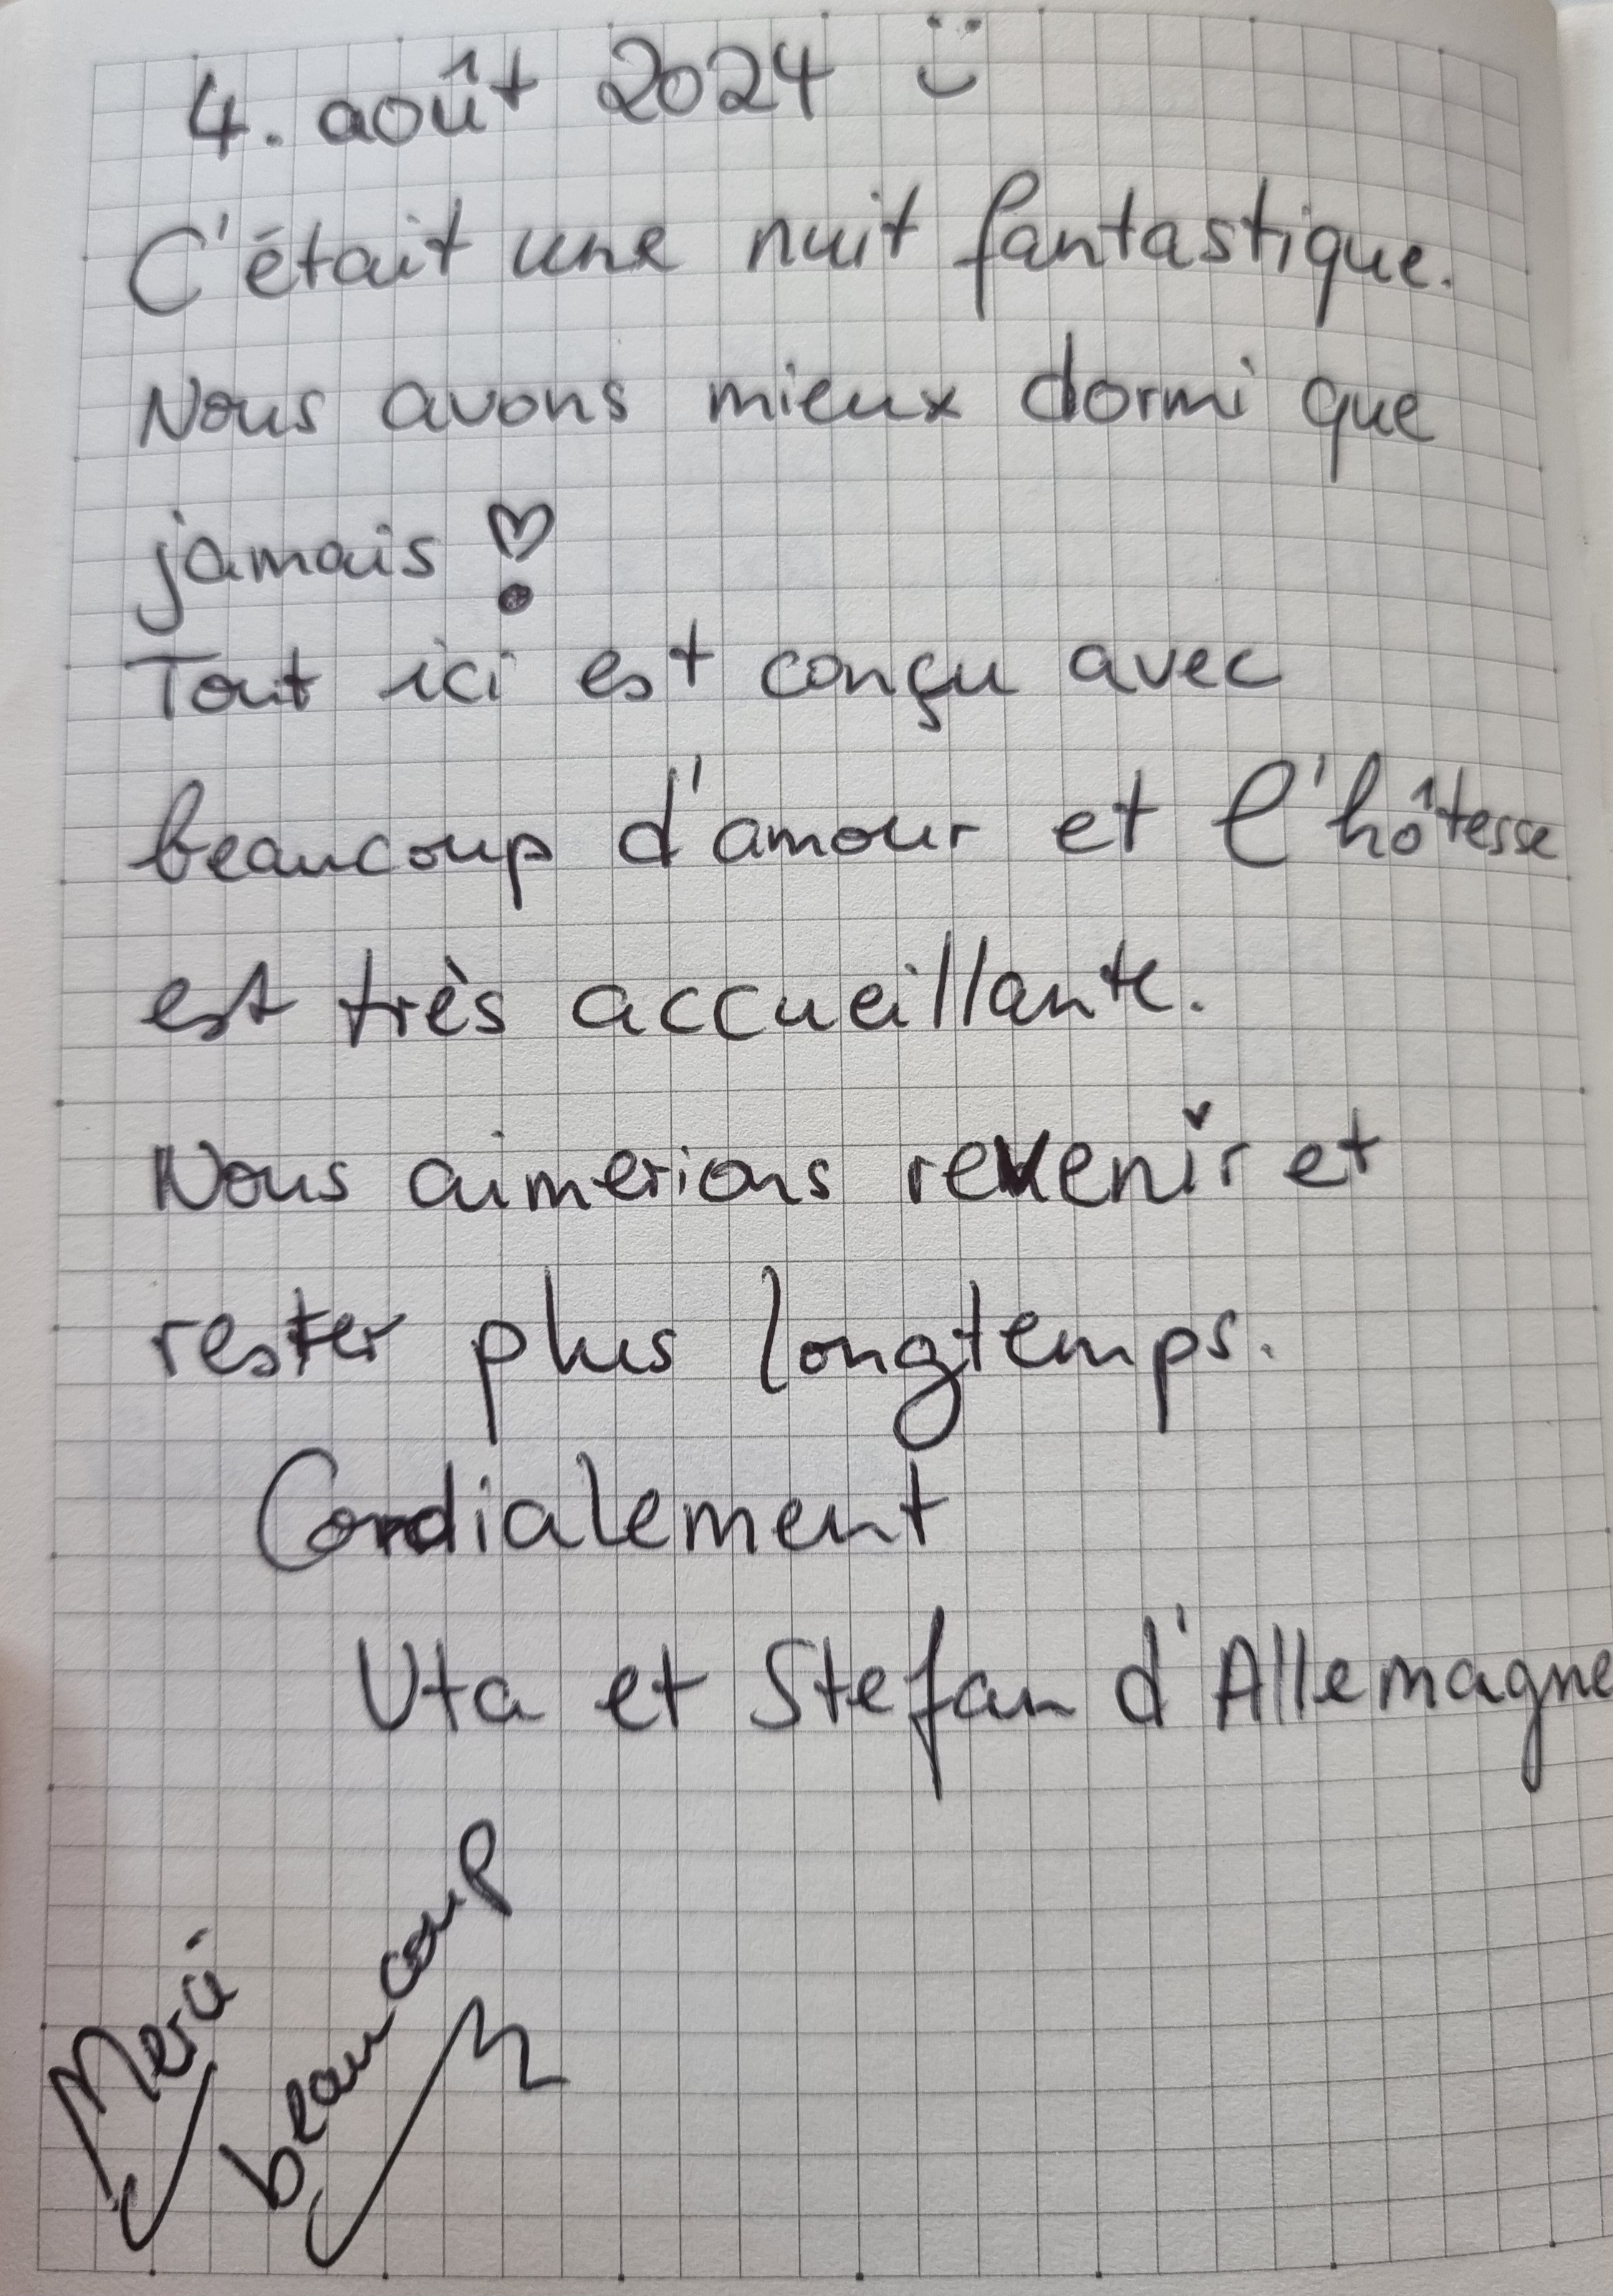 4. août 2024 :)
C'était une nuit fantastique.
Nous avons mieux dormi que
jamais !
Tout ici est conçu avec
beaucoup d'amour et l'hôtesse
est très accueillante.
Nous aimerions revenir et
rester plus longtemps.
Cordialement
Uta et Stefan d'Allemagne
Merci
beaucoup